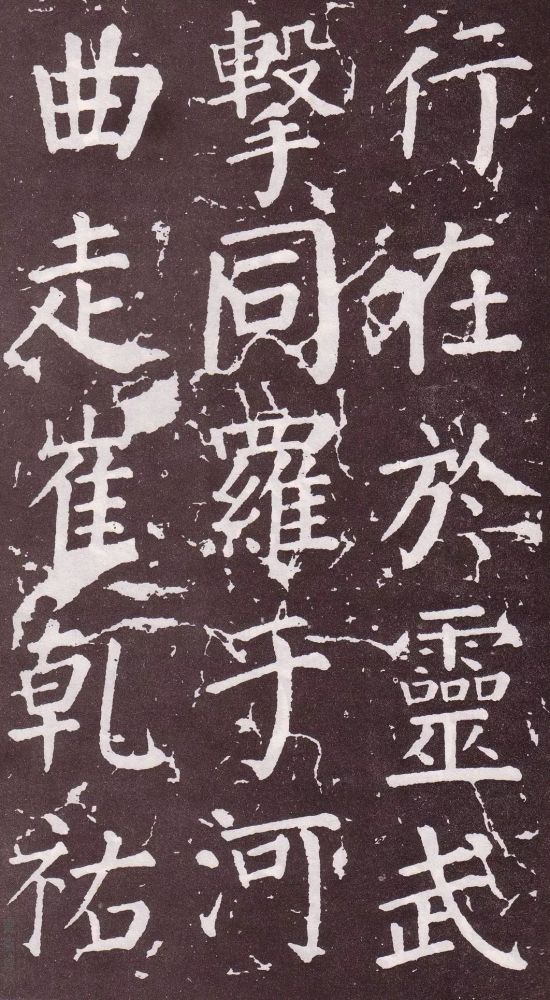 行在於靈武
擊同羅于河
曲走崔乹祐